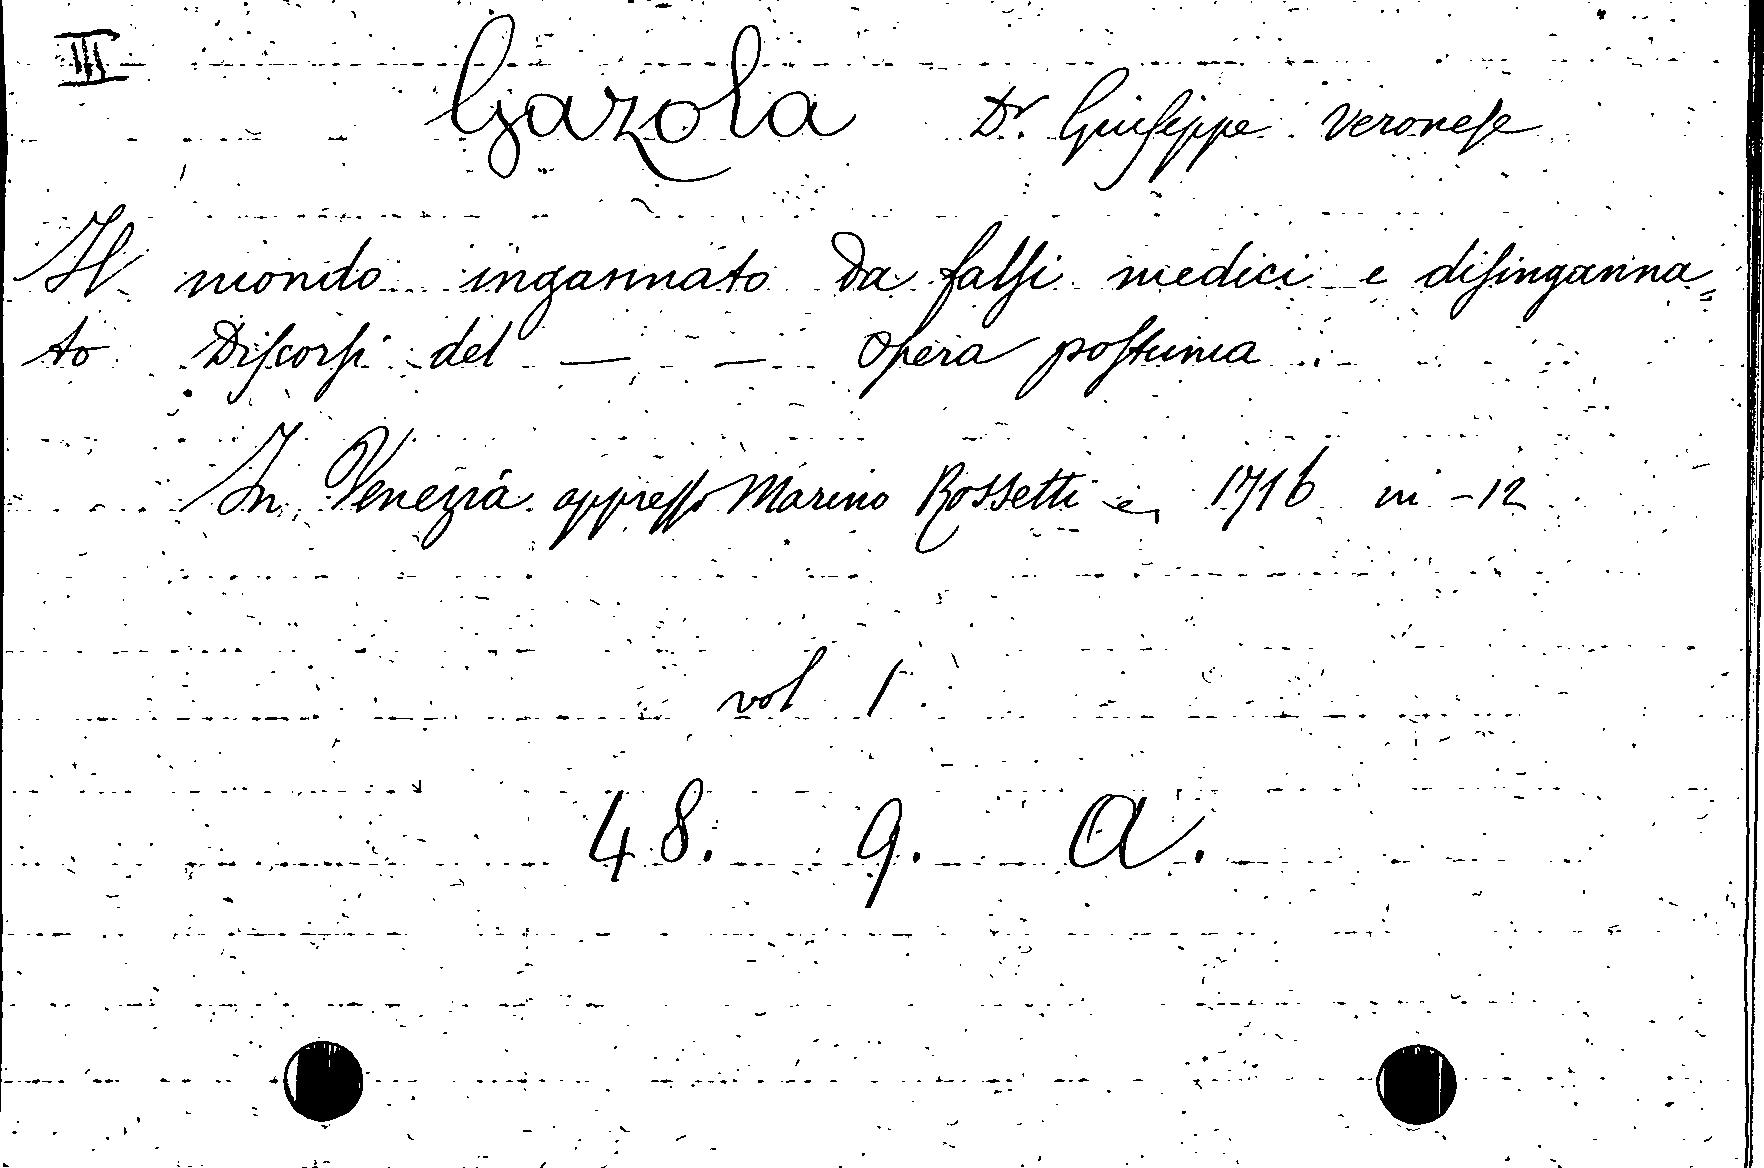 III
Gazola Dr. Giuseppe Veronese
Il mondo ingannato da falsi medici e disinganna=
to Discorsi del — — Opera postuma
In Venezia appresso Marino Rossetti 1716 in -12
vol 1
48. 9. A.